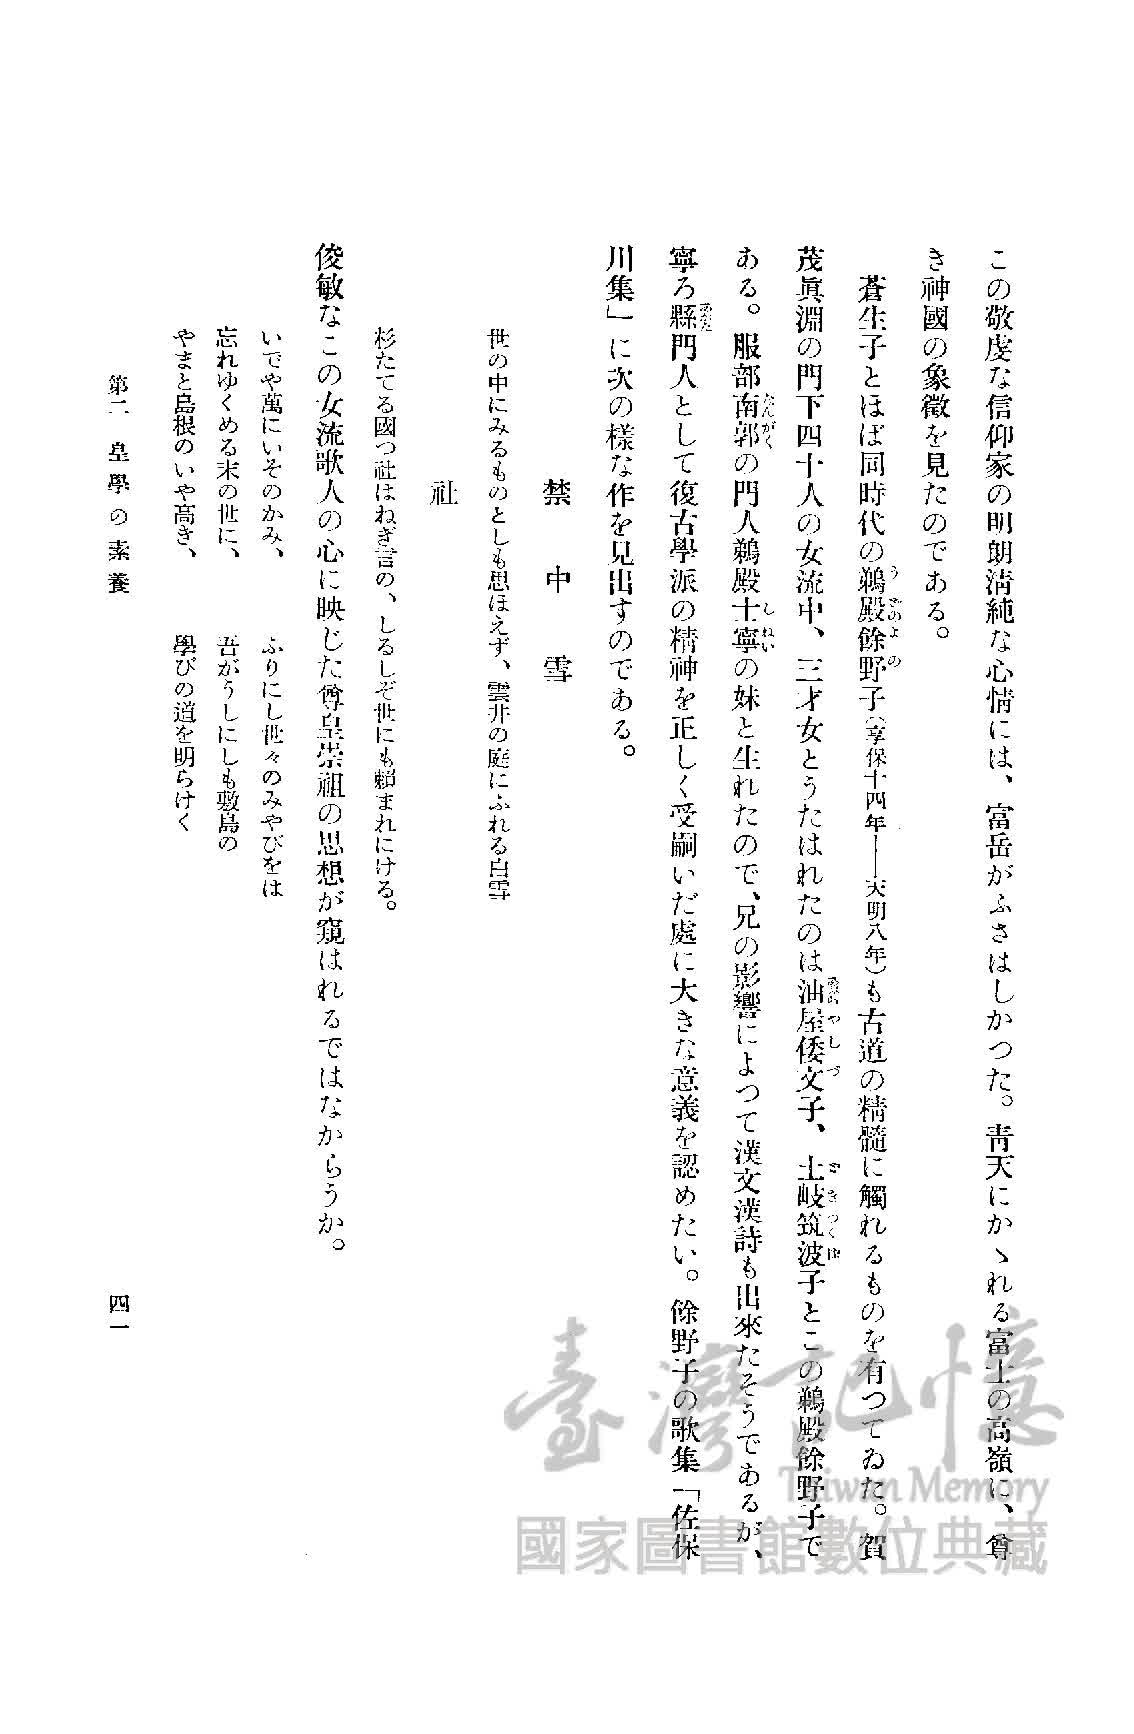 この敬虔な信仰家の明朗淸純な心情には、富岳がふさはしかつた。靑天にかゝれる富士の高嶺に、尊
き神國の象徵を見たのである。
蒼生子とほぼ同時代の鵜殿餘野子（享保十四年――天明八年）も古道の精髓に觸れるものを有つてゐた。賀
茂眞淵の門下四十人の女流中、三才女とうたはれたのは油屋倭文子、土岐筑波子とこの鵜殿餘野子で
ある。服部南郭の門人鵜殿士寧の妹と生れたので、兄の影響によつて漢文漢詩も出來たそうであるが、
寧ろ縣門人として復古學派の精神を正しく受嗣いだ處に大きな意義を認めたい。餘野子の歌集「佐保
川集」に次の樣な作を見出すのである。
禁中雪
世の中にみるものとしも思ほえず、雲井の庭にふれる白雪
社
杉たてる國つ社はねぎ言の、しるしぞ世にも賴まれにける。
俊敏なこの女流歌人の心に映じた尊皇崇祖の思想が窺はれるではなからうか。
いでや萬にいそのかみ、 ふりにし世々のみやびをは
忘れゆくめる末の世に、 吾がうしにしも敷島の
やまと島根のいや高き、 學びの道を明らけく
第二 皇學の素養
四一
臺灣記憶
Taiwan Memory
國家圖書館數位典藏